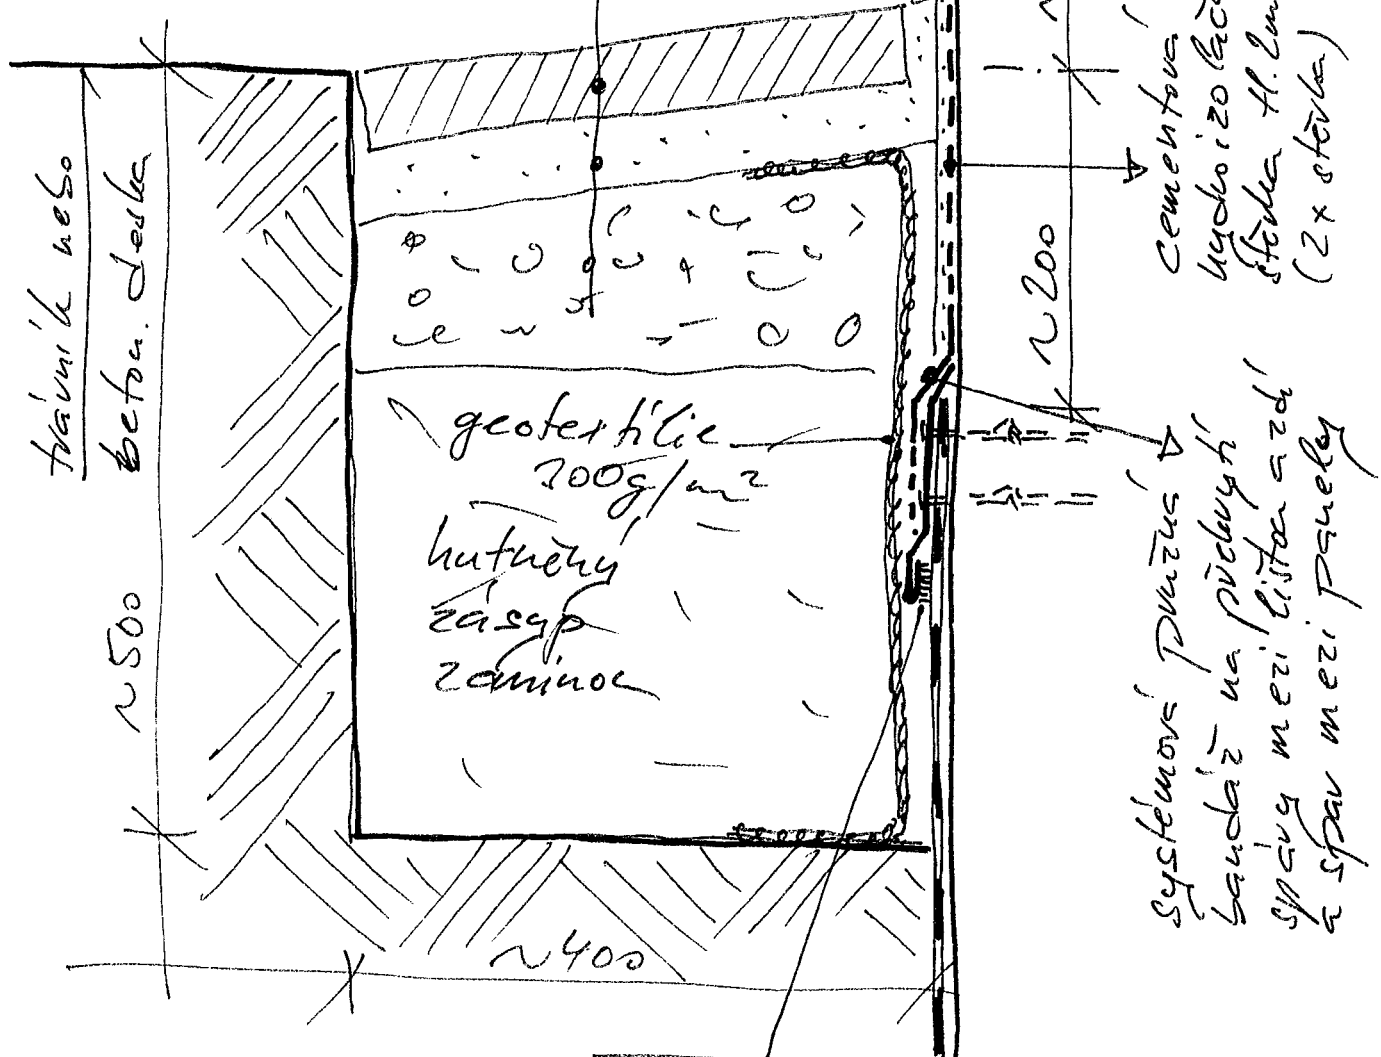 trávník nebo
beton. deska
~500
geotextílie
300g/m²
hutněný
zásyp
zeminou
~400
~200
cementová
hydroizolač
stěrka tl. 2m
(2x stěrka)
systémová pružná
bandáž na překrytí
spáry mezi lištou a zdí
a spar mezi panely